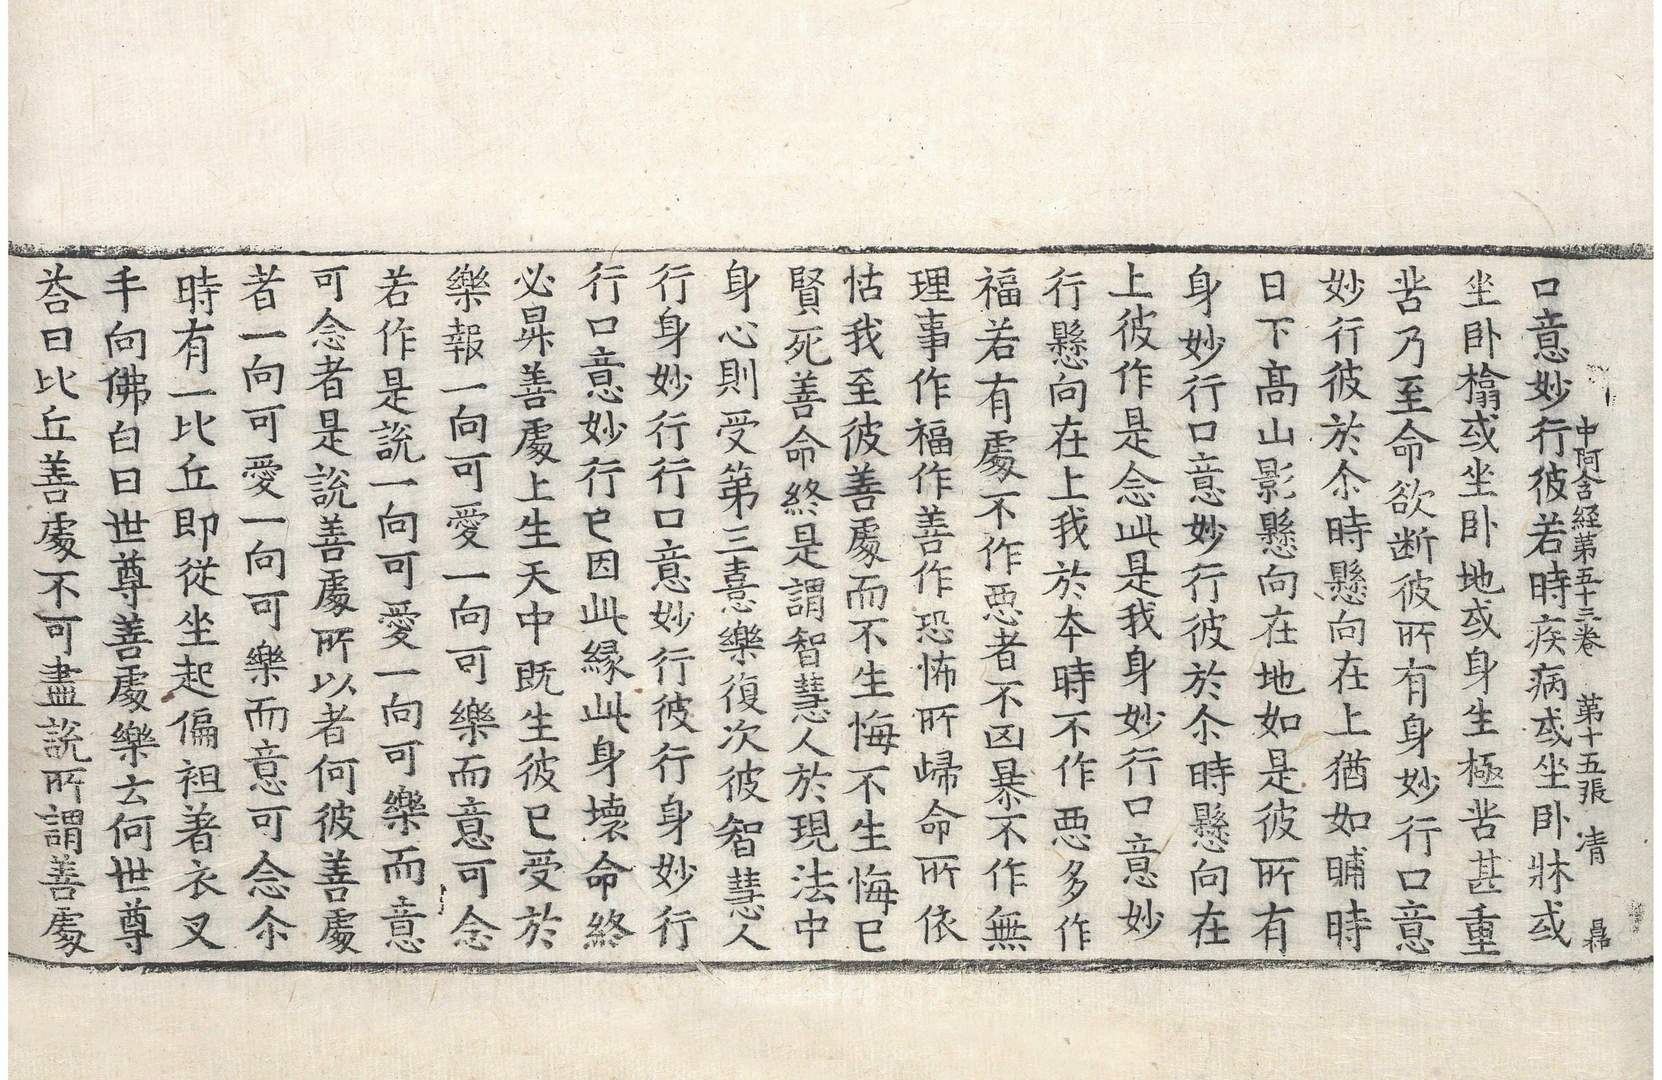 中阿含経第五十三巻 第十五張 清
口意妙行彼若時疾病或坐卧牀或
坐卧榻或坐卧地或身生極苦甚重
苦乃至命欲断彼所有身妙行口意
妙行彼於尒時懸向在上猶如晡時
日下高山影懸向在地如是彼所有
身妙行口意妙行彼於尒時懸向在
上彼作是念此是我身妙行口意妙
行懸向在上我於夲時不作惡多作
福若有處不作惡者不凶暴不作無
理事作福作善作恐怖所歸命所依
怙我至彼善處而不生悔不生悔已
賢死善命終是謂智慧人於現法中
身心則受第三憙樂復次彼智慧人
行身妙行行口意妙行彼行身妙行
行口意妙行已因此縁此身壞命終
必昇善處上生天中既生彼已受於
樂報一向可愛一向可樂而意可念
若作是説一向可愛一向可樂而意
可念者是説善處所以者何彼善處
者一向可愛一向可樂而意可念尒
時有一比丘即從坐起偏袒著衣叉
手向佛白曰世尊善處樂云何世尊
荅曰比丘善處不可盡説所謂善處